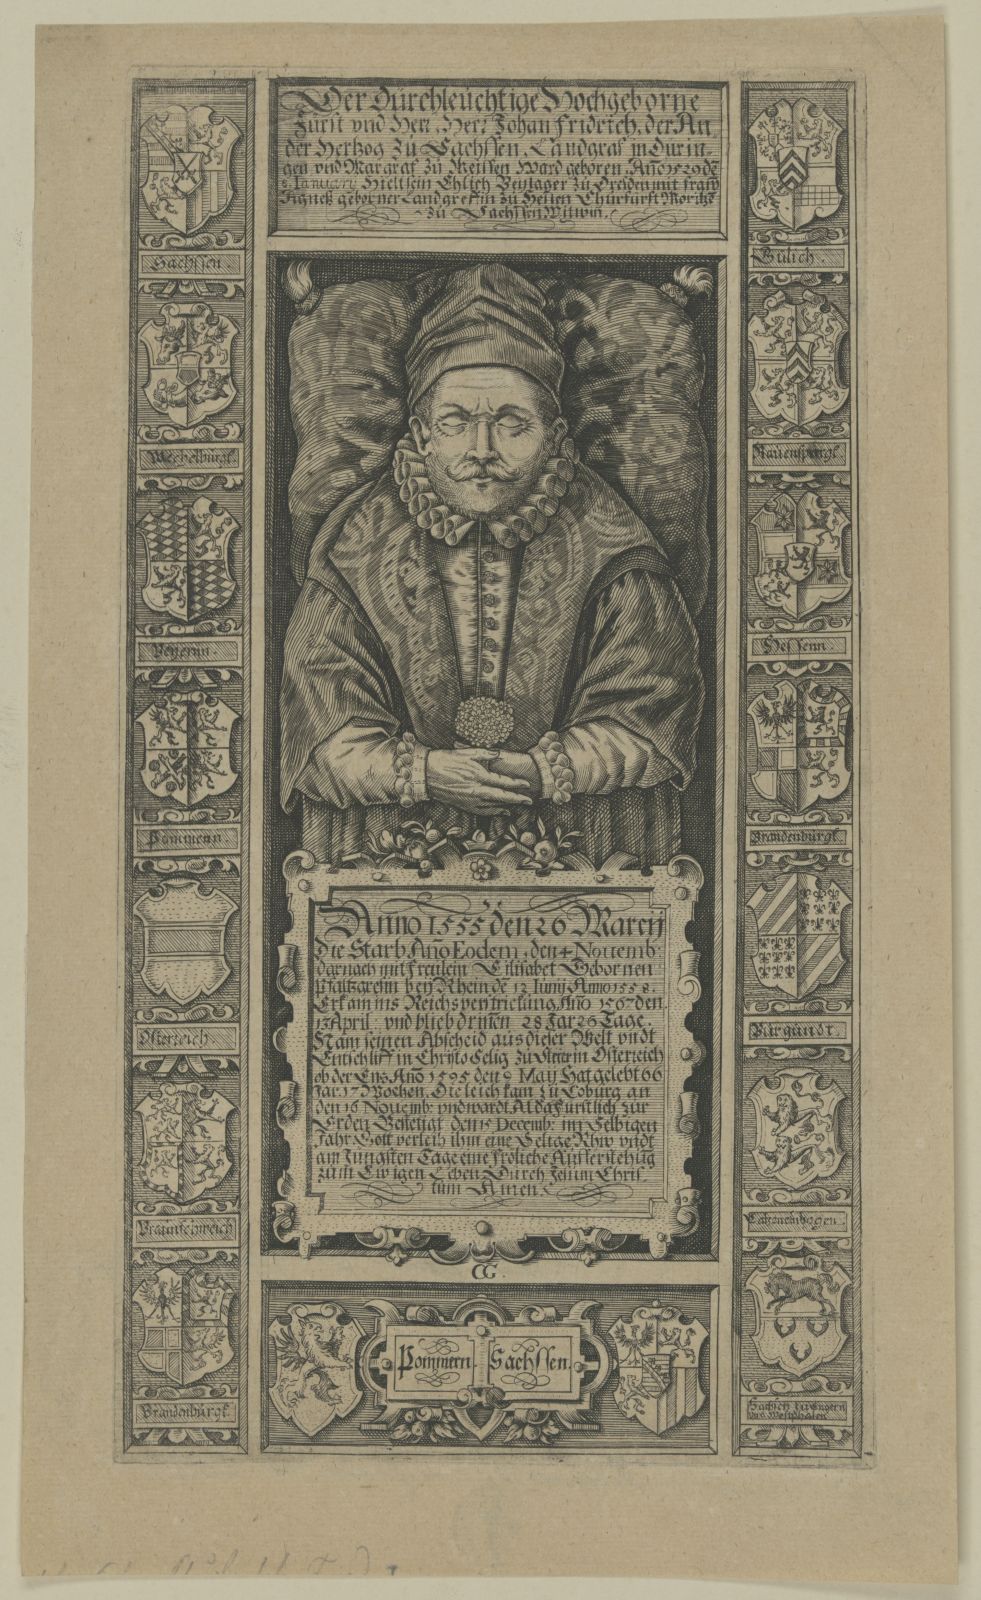 Der Durchleuchtige Hochgeborne
Fürst vnd Herr, Herr Johan Fridrich, der An
der Hertzog Zu Sachssen, Landgraf in Durin-
gen vnd Margraf zu Meissen Ward geboren Año 1529 dẽ
8 January Hielt sein Ehlich Beylager zu Dresden mit fraw
Agneß geborner Landgrefin zu Hessen Churfürst Moritz
Zu Sachssen Witwin.
Sachssen.
Mechelburgk.
Beyernn.
Pommern.
Osterreich.
Braunschweich
Brandenburgk.
Gülich.
Rauenspurgk.
Hessenn.
Brandenburgk.
Burgundt.
Catzenelnbogen.
Sachsen zu Engern
vnd Westphalen
Anno 1555 den 26 Marcy
Die Starb Año Eodem, den 4 Nouemb:
darnach mit freulein Elisabet Gebornen
Pfaltzgrefin bey Rhein dẽ 12 Iunij Anno 1558.
Er kam ins Reichs verstrickung Año 1567 den
13 April: vnd blieb drinen 28 Jar 26 Tage
Nam seinen Abscheid aus dieser Welt vndt
Entschlief in Christo Selig zu Steier in Osterreich
ob der Ens Año 1595 den 9 May Hat gelebt 66
Jar 17 Wochen, Die leich kam zu Coburg an
den 16 Nouemb: vnd wardt Alda fürstlich zur
Erden Bestetigt den 15 Decemb: im Selbigen
Jahr Gott verleih ihm eine Selige Rhw vndt
am Jungsten Tage eine fröliche Aufferstehũg
zum Ewigen Leben Durch Jesum Chris
tum Amen.
CG.
Pommern. Sachssen.